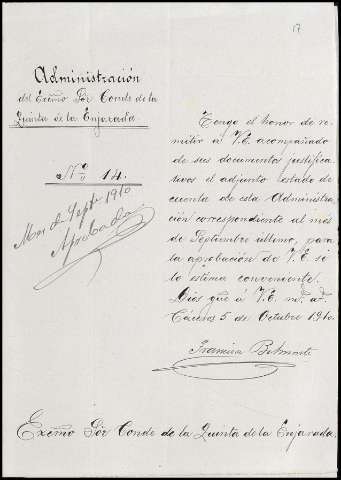 Administración
del Excmo Sõr Conde de la
Quinta de la Enjarada
Nº 14.
Mes de Septe 1910
Aprobada
Tengo el honor de re-
mitir á V.E. acompañado
de sus documentos justifica-
tivos el adjunto estado de
cuenta de esta Administra-
ción correspondiente al mes
de Septiembre último, para
la aprobación de V.E. si
lo estima conveniente.
Dios gue á V.E. ms. as.
Cáceres 5 de Octubre 1910.
Francisco Belmonte
Excmo Sõr Conde de la Quinta de la Enjarada.